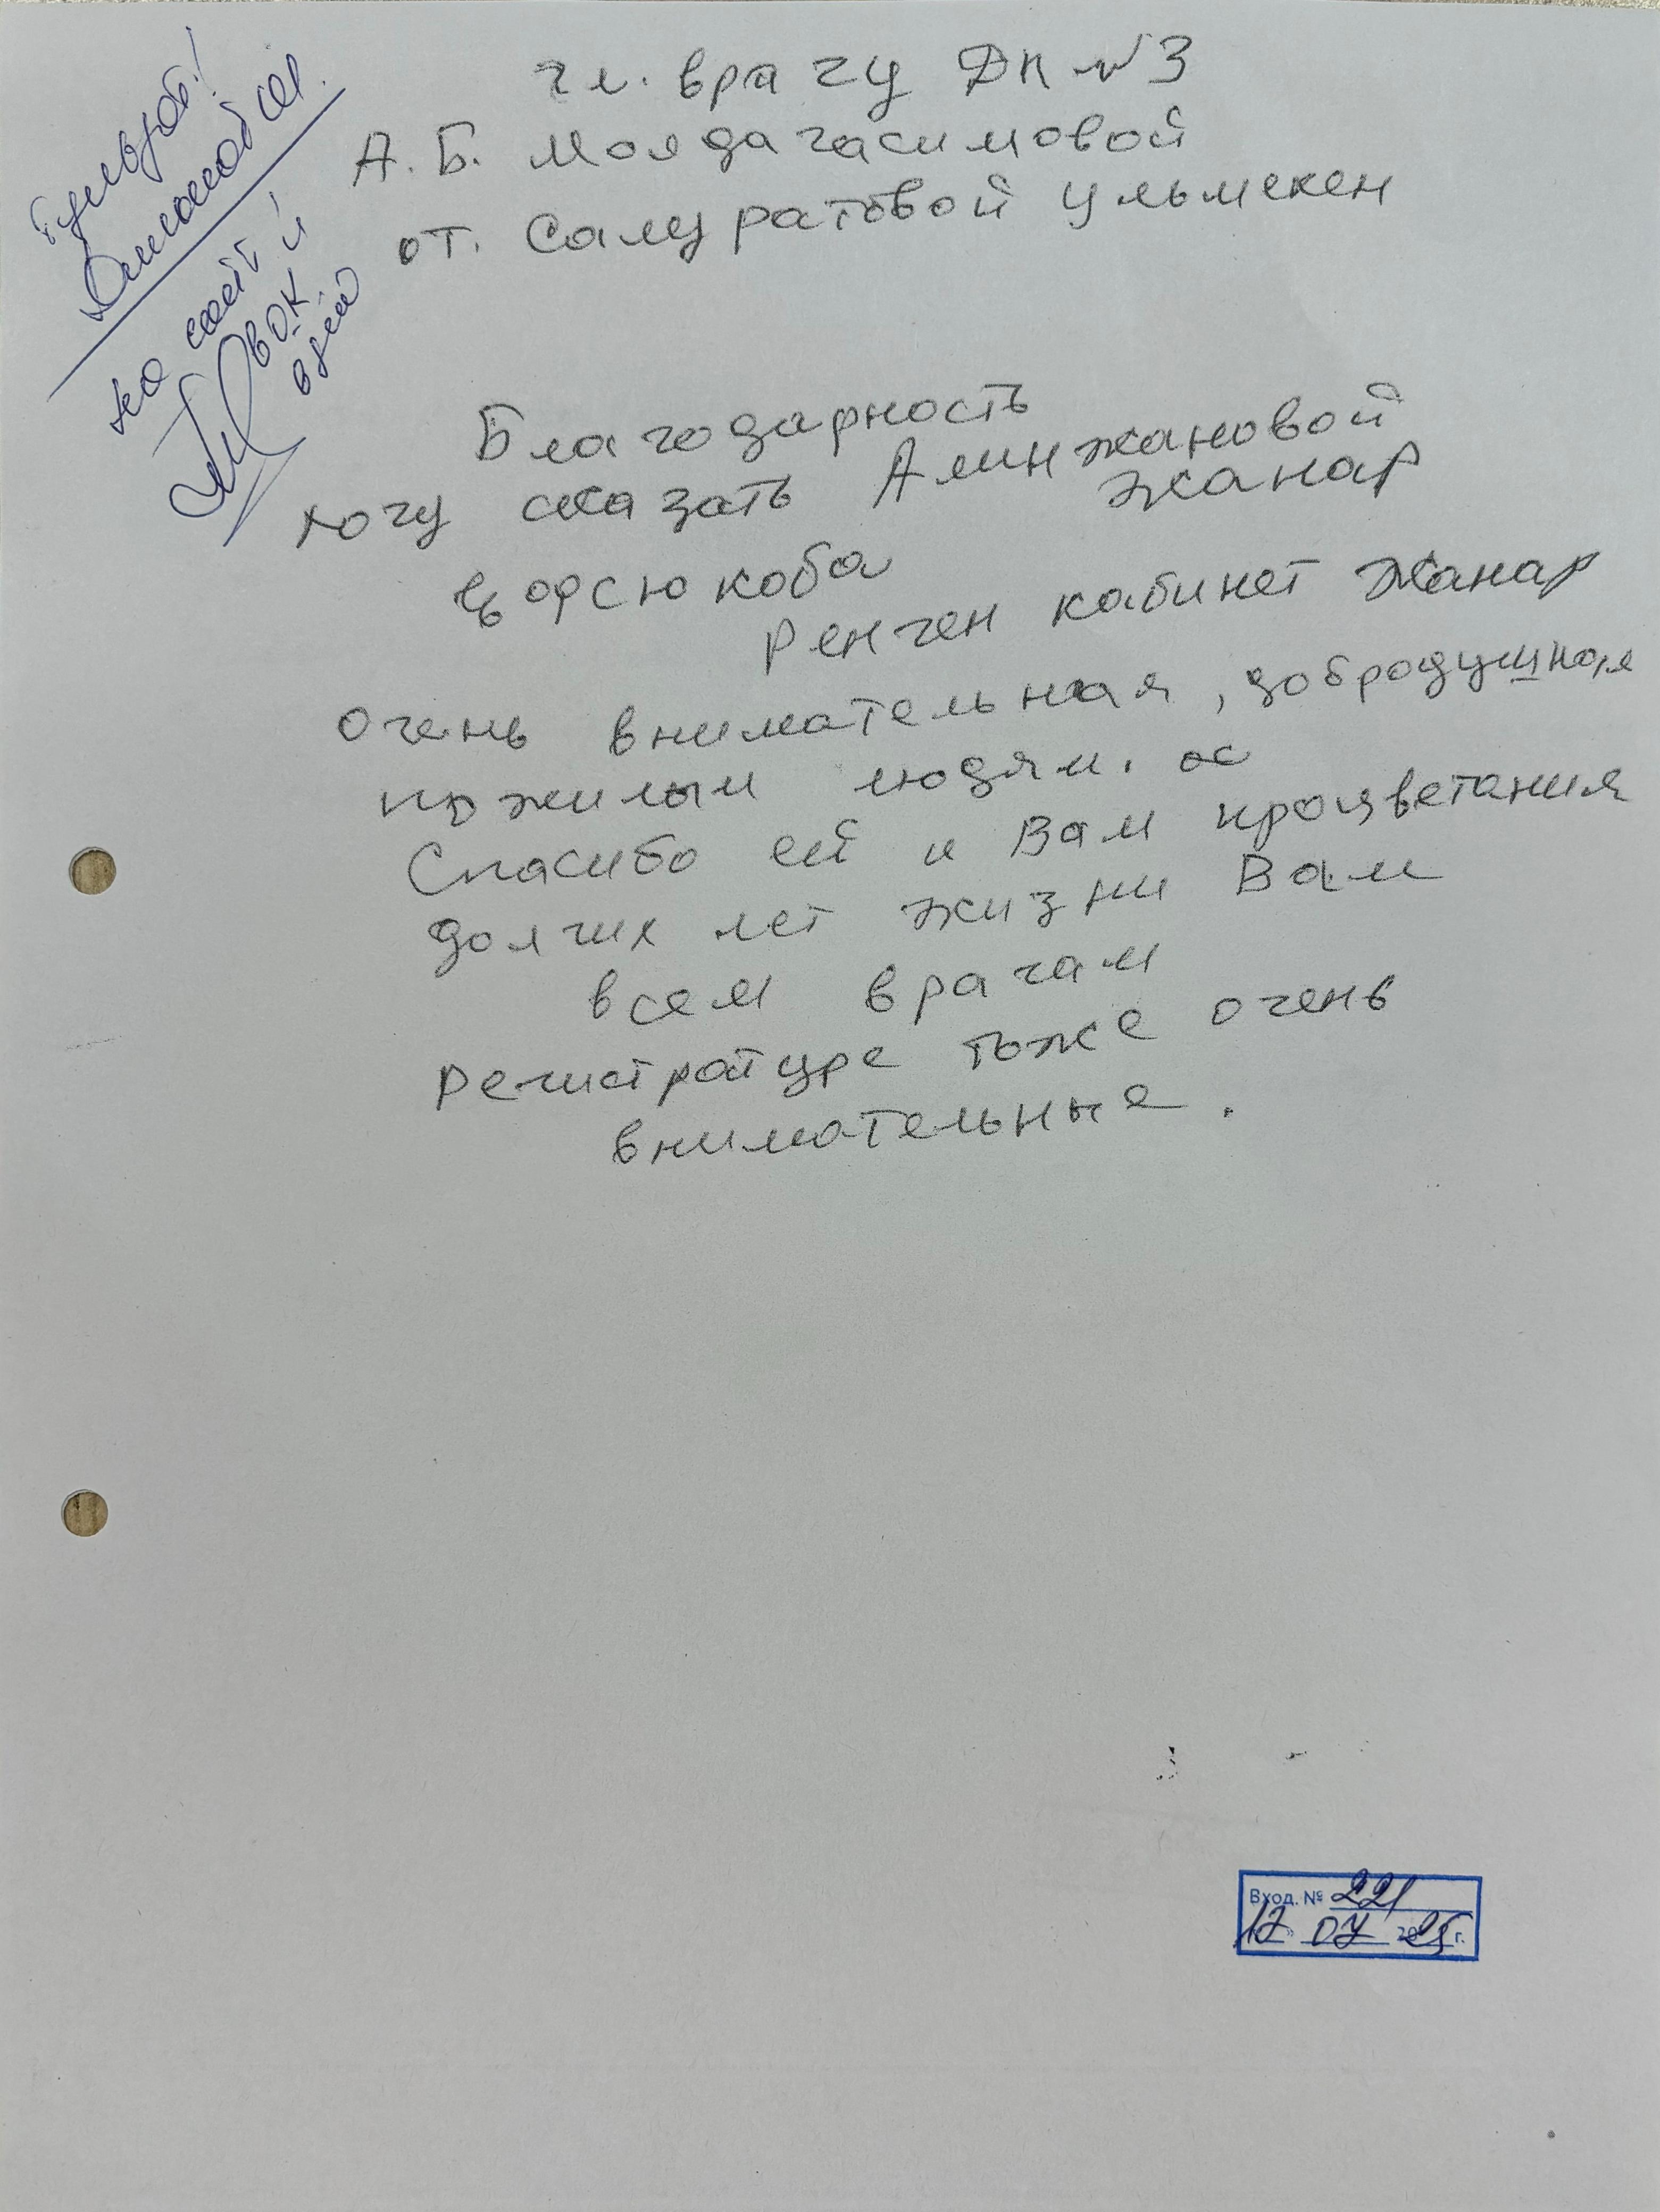 гл. врачу ДП №3
А.Б. Молдагасимовой
от. Самуратовой Ульмекен
на сайт и
ВОК
Благодарность
хочу сказать Алинжановой
Жанар
Ренген кабинет Жанар
очень внимательная, добродушная
пожилым людям.
Спасибо ей и Вам процветания
долгих лет жизни Вам
всем врачам
Регистратуре тоже очень
внимательные.
Вход. № 221
17 07 2025 г.